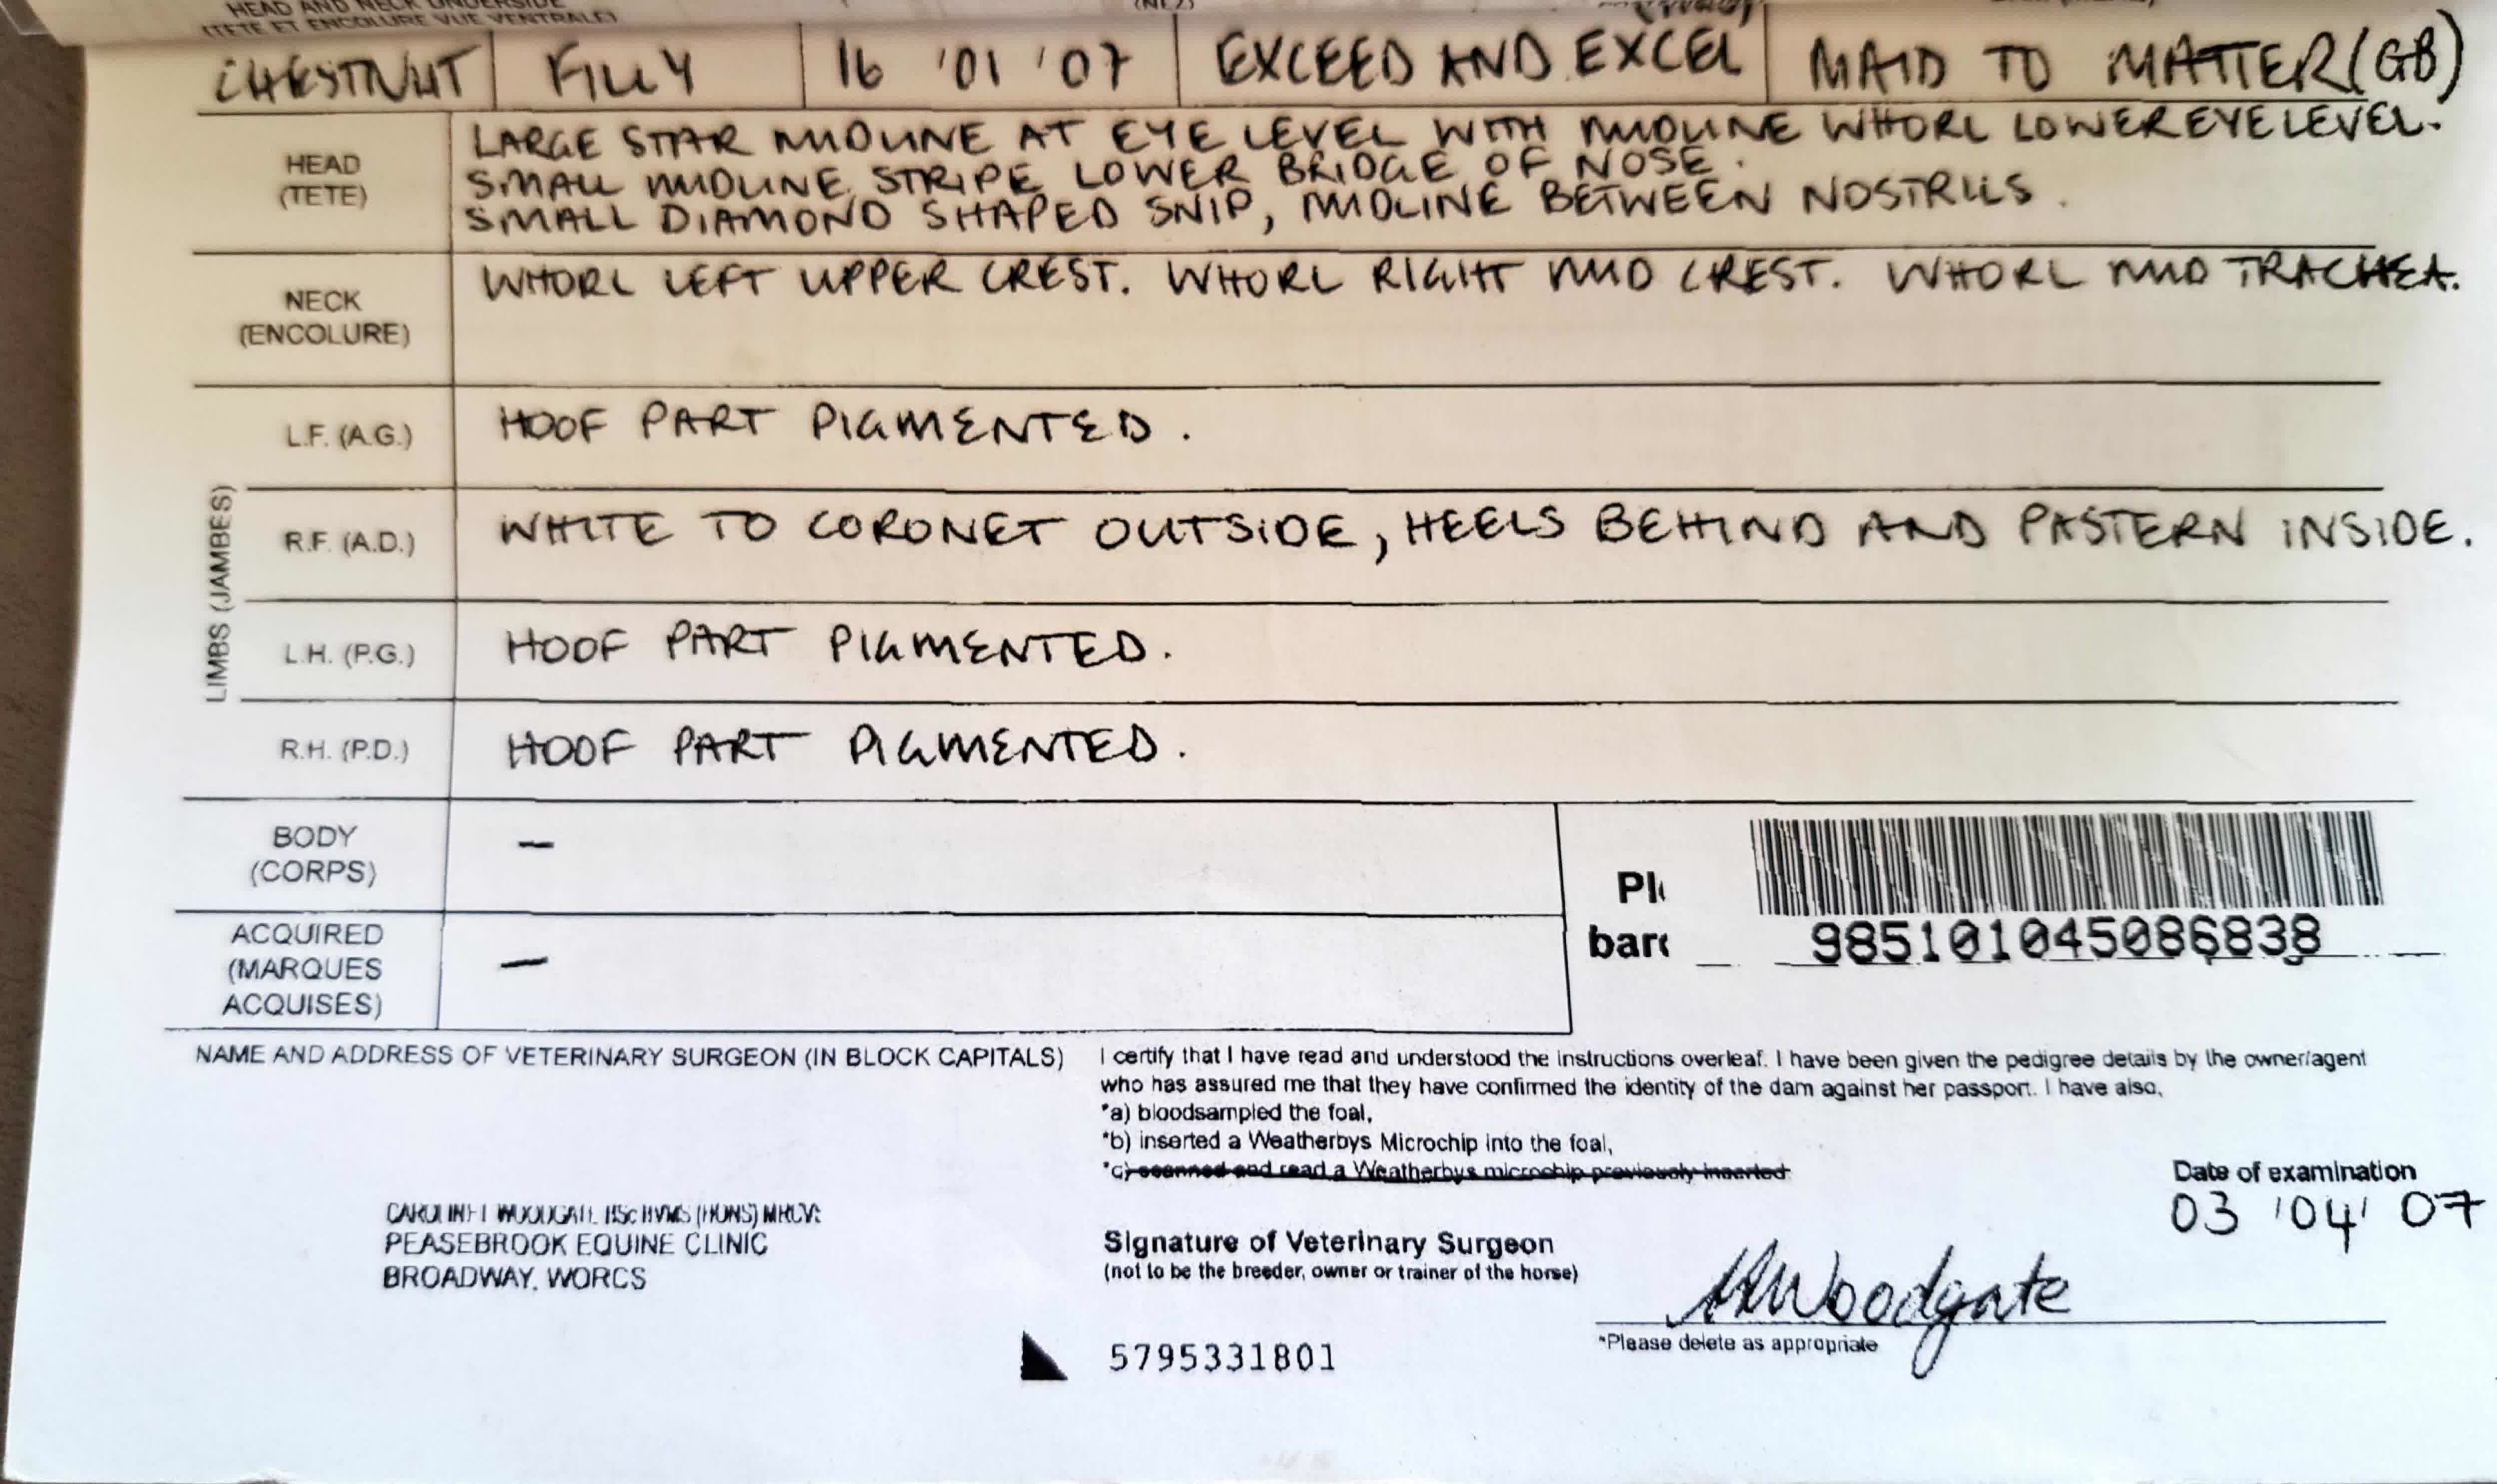 HEAD AND NECK UNDERSIDE
(TETE ET ENCOLURE VUE VENTRALE)
CHESTNUT FILLY 16 '01 '07 EXCEED AND EXCEL MAID TO MATTER (GB)
HEAD
(TETE)
LARGE STAR MIDLINE AT EYE LEVEL WITH MIDLINE WHORL LOWER EYE LEVEL.
SMALL MIDLINE STRIPE LOWER BRIDGE OF NOSE.
SMALL DIAMOND SHAPED SNIP, MIDLINE BETWEEN NOSTRILS.
NECK
(ENCOLURE)
WHORL LEFT UPPER CREST. WHORL RIGHT MID CREST. WHORL MID TRACHEA.
LIMBS (JAMBES)
L.F. (A.G.) HOOF PART PIGMENTED.
R.F. (A.D.) WHITE TO CORONET OUTSIDE, HEELS BEHIND AND PASTERN INSIDE.
L.H. (P.G.) HOOF PART PIGMENTED.
R.H. (P.D.) HOOF PART PIGMENTED.
BODY
(CORPS)
–
ACQUIRED
(MARQUES
ACQUISES)
–
985101045086838
NAME AND ADDRESS OF VETERINARY SURGEON (IN BLOCK CAPITALS)
PEASEBROOK EQUINE CLINIC
BROADWAY, WORCS
I certify that I have read and understood the instructions overleaf. I have been given the pedigree details by the owner/agent
who has assured me that they have confirmed the identity of the dam against her passport. I have also,
*a) bloodsampled the foal,
*b) inserted a Weatherbys Microchip into the foal,
*c) scanned and read a Weatherbys microchip previously inserted
Date of examination
03 '04' 07
Signature of Veterinary Surgeon
(not to be the breeder, owner or trainer of the horse)
Woodgate
*Please delete as appropriate
5795331801